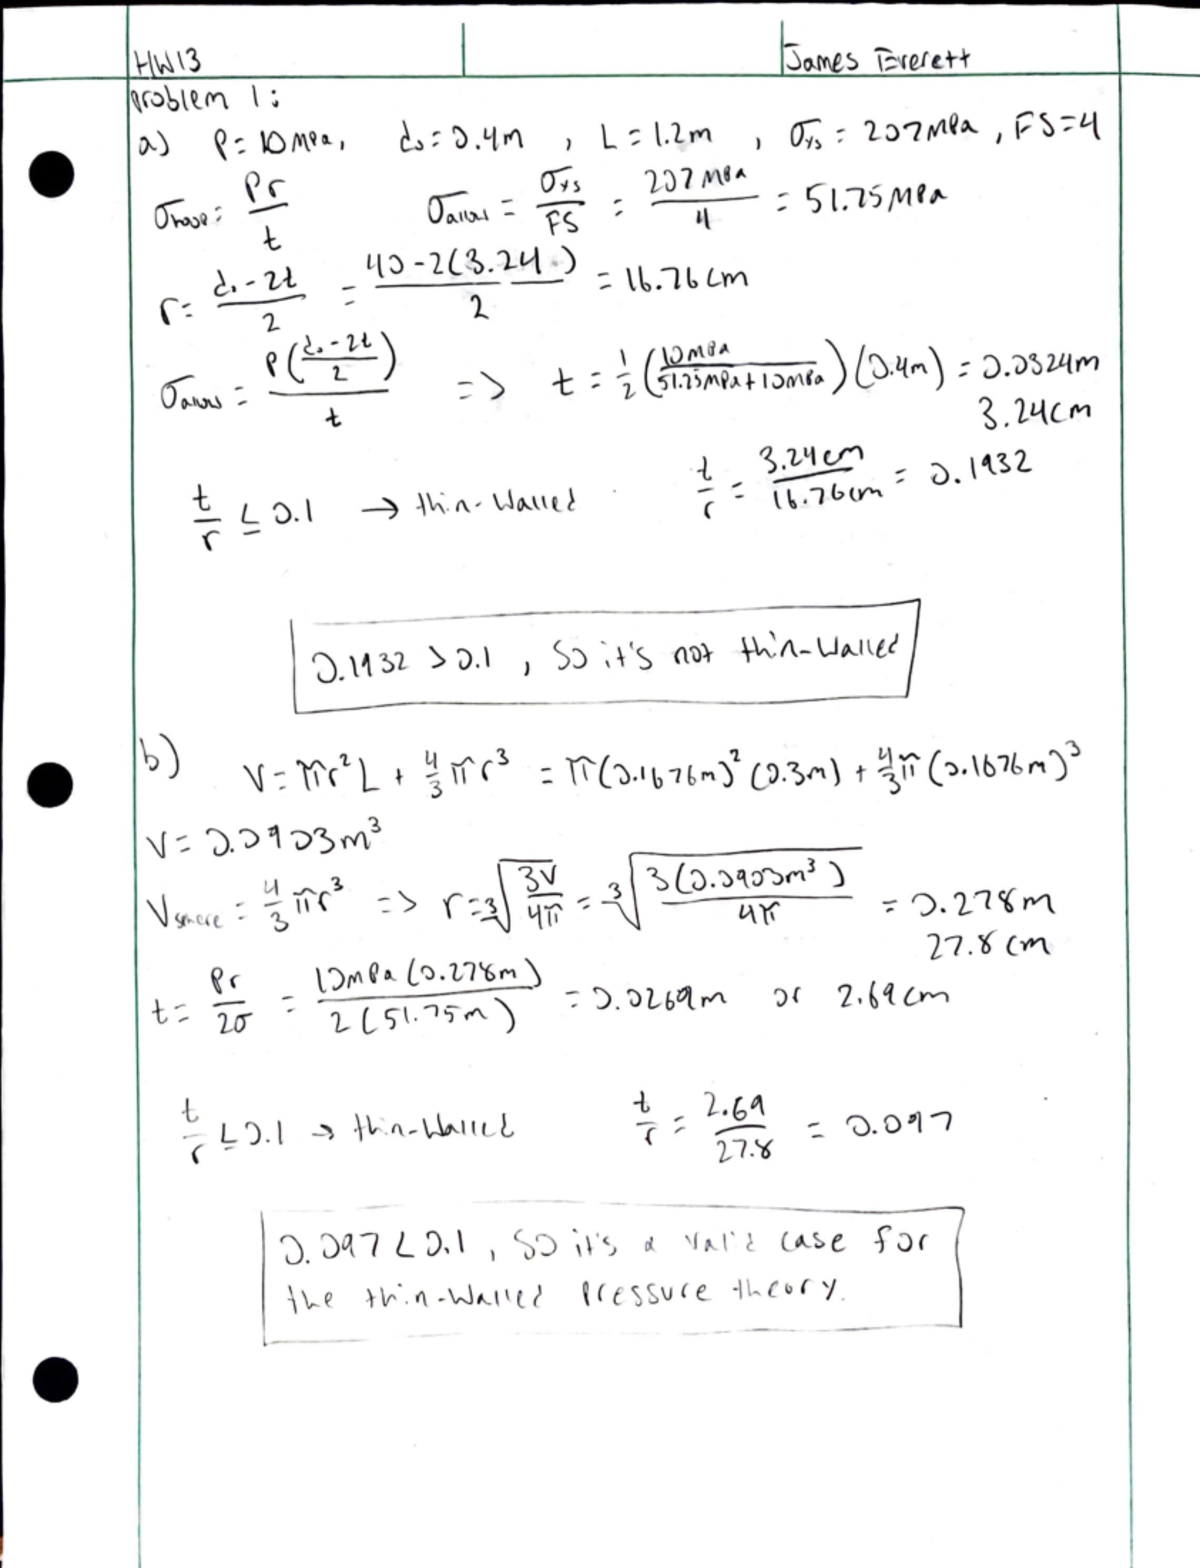 HW13 James Everett
Problem 1:
a) P = 10 MPa, do = 0.4m, L = 1.2m, σys = 207MPa, FS=4
σhoop = Pr/t σallow = σys/FS = 207 MPa/4 = 51.75 MPa
r = (do - 2t)/2 = (40 - 2(3.24))/2 = 16.76 cm
σallow = P((do - 2t)/2)/t => t = 1/2 (10MPa/(51.75MPa + 10MPa))(0.4m) = 0.0324m
3.24cm
t/r ≤ 0.1 → thin-walled t/r = 3.24cm/16.76cm = 0.1932
0.1932 > 0.1, So it's not thin-walled
b) V = πr²L + 4/3 πr³ = π(0.1676m)²(0.3m) + 4/3 π(0.1676m)³
V = 0.0903m³
Vsphere = 4/3 πr³ => r = ³√(3V/4π) = ³√(3(0.0903m³)/4π) = 0.278m
27.8 cm
t = Pr/2σ = 10MPa(0.278m)/2(51.75m) = 0.0269m or 2.69cm
t/r ≤ 0.1 → thin-walled t/r = 2.69/27.8 = 0.097
0.097 < 0.1, so it's a valid case for
the thin-walled pressure theory.